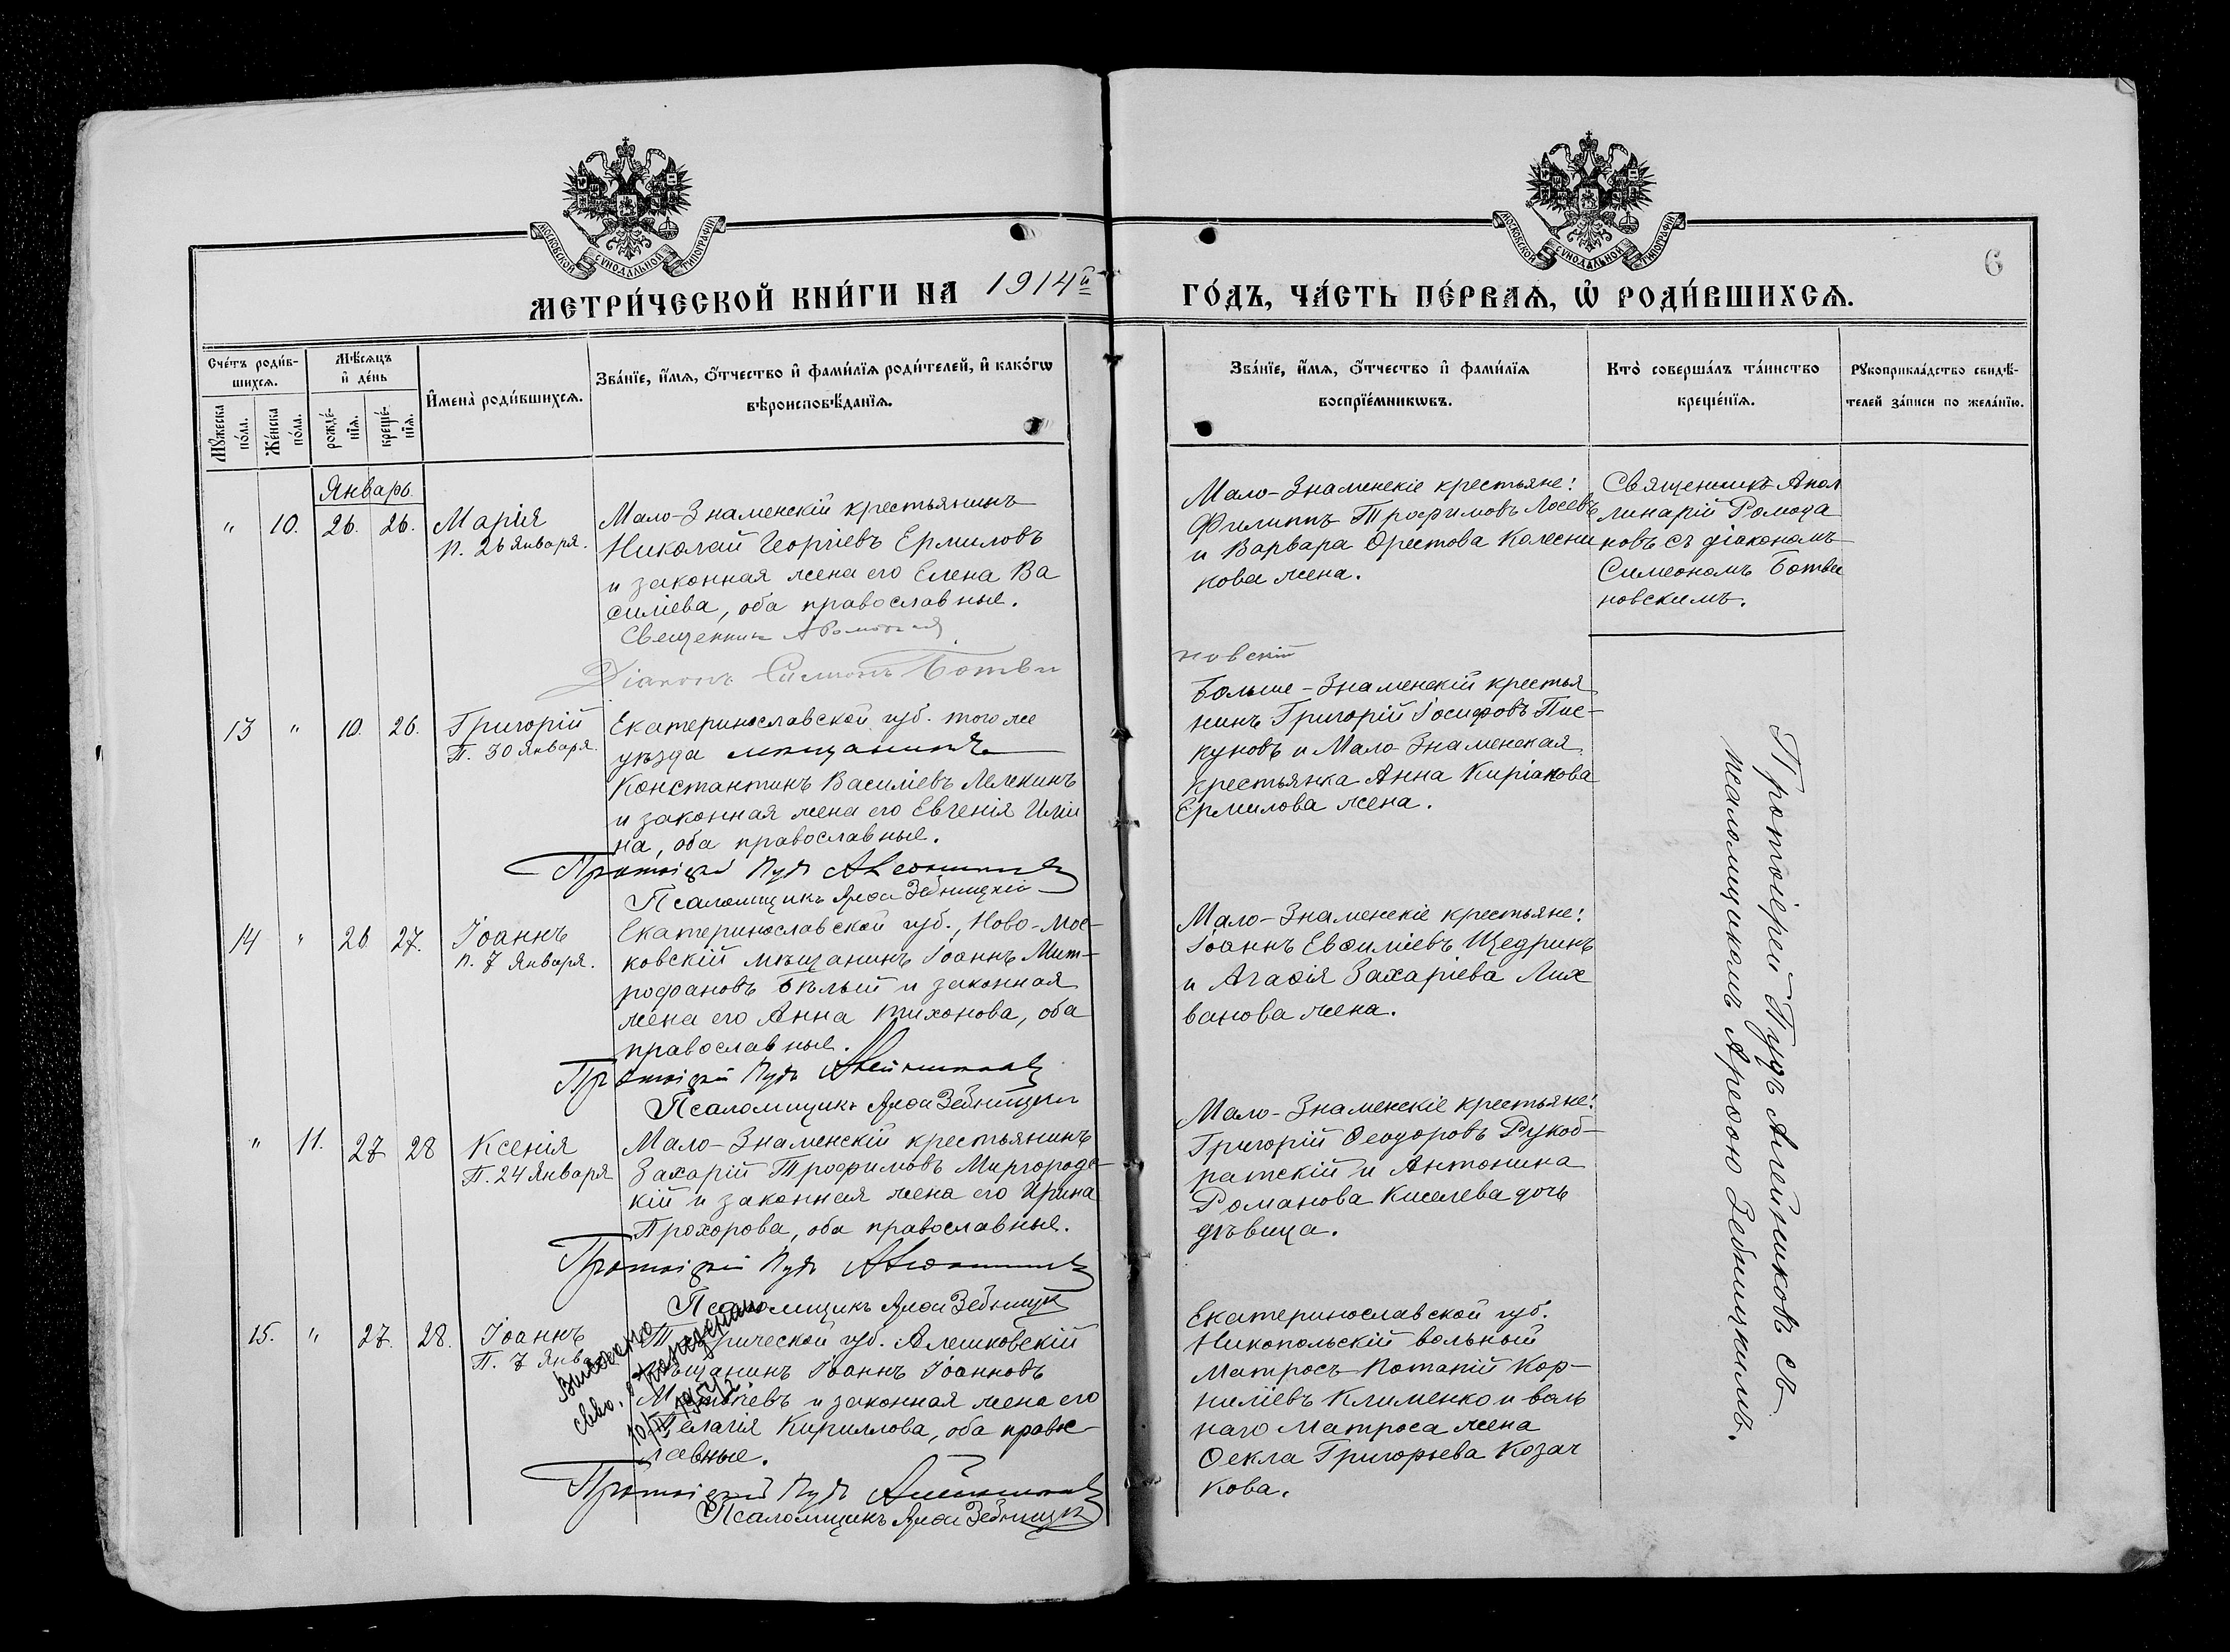 МОСКОВСКОЙ СУНОДАЛЬНОЙ ТИПОГРАФІИ
МОСКОВСКОЙ СУНОДАЛЬНОЙ ТИПОГРАФІИ
6
МЕТРИ́ЧЕСКОЙ КНИ́ГИ НА 1914й ГО́ДЪ, ЧА́СТЬ ПЕ́РВАѦ, Ѡ҆ РОДИ́ВШИХСѦ.
Сче́тъ роди́в-
шихсѧ.
Мꙋ́жеска
по́ла.
Же́нска
по́ла.
Мѣ́сѧцъ
и҆ де́нь
рожде́-
нїѧ.
креще́-
нїѧ.
И҆мена̀ роди́вшихсѧ.
Зва́нїе, и҆́мѧ, ѻ҆́тчество и҆ фами́лїѧ роди́телей, и҆ како́гѡ
вѣроисповѣ́данїѧ.
Зва́нїе, и҆́мѧ, ѻ҆́тчество и҆ фами́лїѧ
воспрїе́мникѡвъ.
Кто̀ соверша́лъ та́инство
креще́нїѧ.
Рꙋкоприкла́дство свидѣ́-
телей за́писи по жела́нїю.
Январь.
" 10. 26. 26.
Марія
п. 26 января.
Мало-Знаменскій крестьянинъ
Николай Георгіевъ Ермиловъ
и законная жена его Елена Ва
силіева, оба православные.
Священникъ
Діаконъ Симеонъ Ботви
новскій
Мало-Знаменскіе крестьяне:
Филиппъ Трофимовъ Лосевъ
и Варвара Орестова Колесни
кова жена.
Священникъ Апол
линарій Ромода
новъ съ діакономъ
Симеономъ Ботви
новскимъ.
13 " 10. 26.
Григорій
П. 30 января.
Екатеринославской губ. того же
уѣзда мѣщанинъ
Константинъ Василіевъ Лелекинъ
и законная жена его Евгенія Иліи
на, оба православные.
Протоіерей Пудъ Алейников
Псаломщикъ Арефа Зебницкій
Больше-Знаменскій крестья
нинъ Григорій Іосифовъ Пис-
куновъ и Мало-Знаменская
крестьянка Анна Киріакова
Ермилова жена.
14 " 26 27.
Іоаннъ
п. 7 января.
Екатеринославской губ., Ново-Мос-
ковскій мѣщанинъ Іоаннъ Мит-
рофановъ Бѣлый и законная
жена его Анна Тихонова, оба
православные.
Протоіерей Пудъ Алейников
Псаломщикъ Арефа Зебницкій
Мало-Знаменскіе крестьяне:
Іоаннъ Евѳиміевъ Щедринъ
и Агаѳія Захаріева Лих
ванова жена.
" 11. 27 28
Ксенія
П. 24 января
Мало-Знаменскій крестьянинъ
Захарій Трофимовъ Миргородс-
кій и законная жена его Ирина
Прохорова, оба православные.
Протоіерей Пудъ Алейников
Псаломщикъ Арефа Зебницк
Мало-Знаменскіе крестьяне:
Григорій Ѳеодоровъ Рукоб-
ратскій и Антонина
Романова Киселева дочь
дѣвица.
15. " 27. 28.
Іоаннъ
П. 7 Янв
Таврической губ. Алешковскій
мѣщанинъ Іоаннъ Іоанновъ
и законная жена его
Пелагія Кириллова, оба правос-
лавные.
Протоіерей Пудъ Алейников
Псаломщикъ Арефа Зебницк
Екатеринославской губ.
Никопольскій вольный
матросъ Потапій Кор-
ниліевъ Клименко и воль
наго матроса жена
Ѳекла Григорьева Козач
кова.
Протоіерей Пудъ Алейниковъ съ
псаломщикомъ Арефою Зебницкимъ.